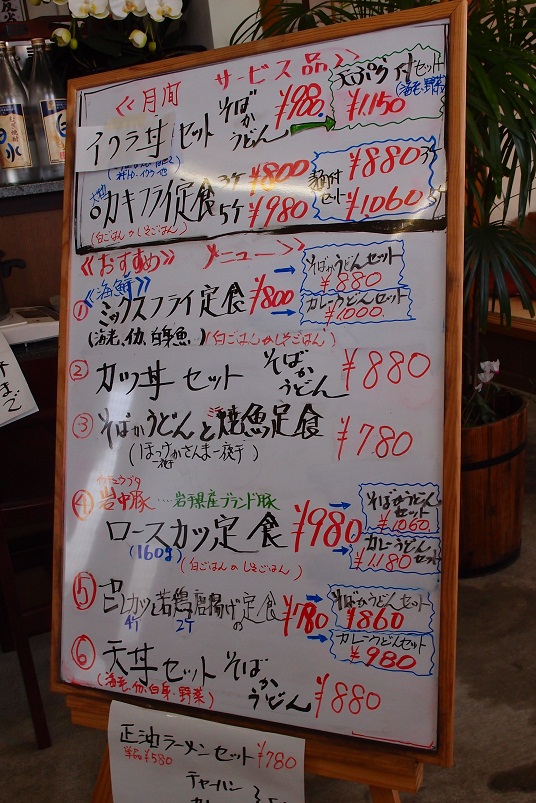 ≪月間 サービス品≫
イクラ丼 セット そばかうどん ¥980
天ぷら付セット
(海老・野菜)
¥1.150
カキフライ定食 3ケ ¥800
5ケ ¥980
(白ごはんかしそごはん)
麺付セット ¥880 3ケ
¥1060 5ケ
≪おすすめ メニュー≫
≪海鮮≫
① ミックスフライ定食 ¥800
(海老、イカ、白身魚) (白ごはんかしそごはん)
そばうどんセット
¥880
カレーうどんセット
¥1000.
② カツ丼 セット そばかうどん ¥880
③ そばかうどんと焼魚定食 ¥780
(ほっけかさんま一夜干)
④ 岩中豚 ....岩手県産ブランド豚
ロースカツ定食 ¥980
(160g) (白ごはんのしそごはん)
そばかうどんセット
¥1060.
カレーうどんセット
¥1,180
⑤ ヒレカツと若鶏唐揚げの定食 ¥780
4ケ 2ケ
そばかうどんセット
¥860
カレーうどんセット
¥980
⑥ 天丼 セット そばかうどん ¥880
(海老、イカ、白身・野菜)
正油ラーメンセット ¥780
単品¥580
チャーハン